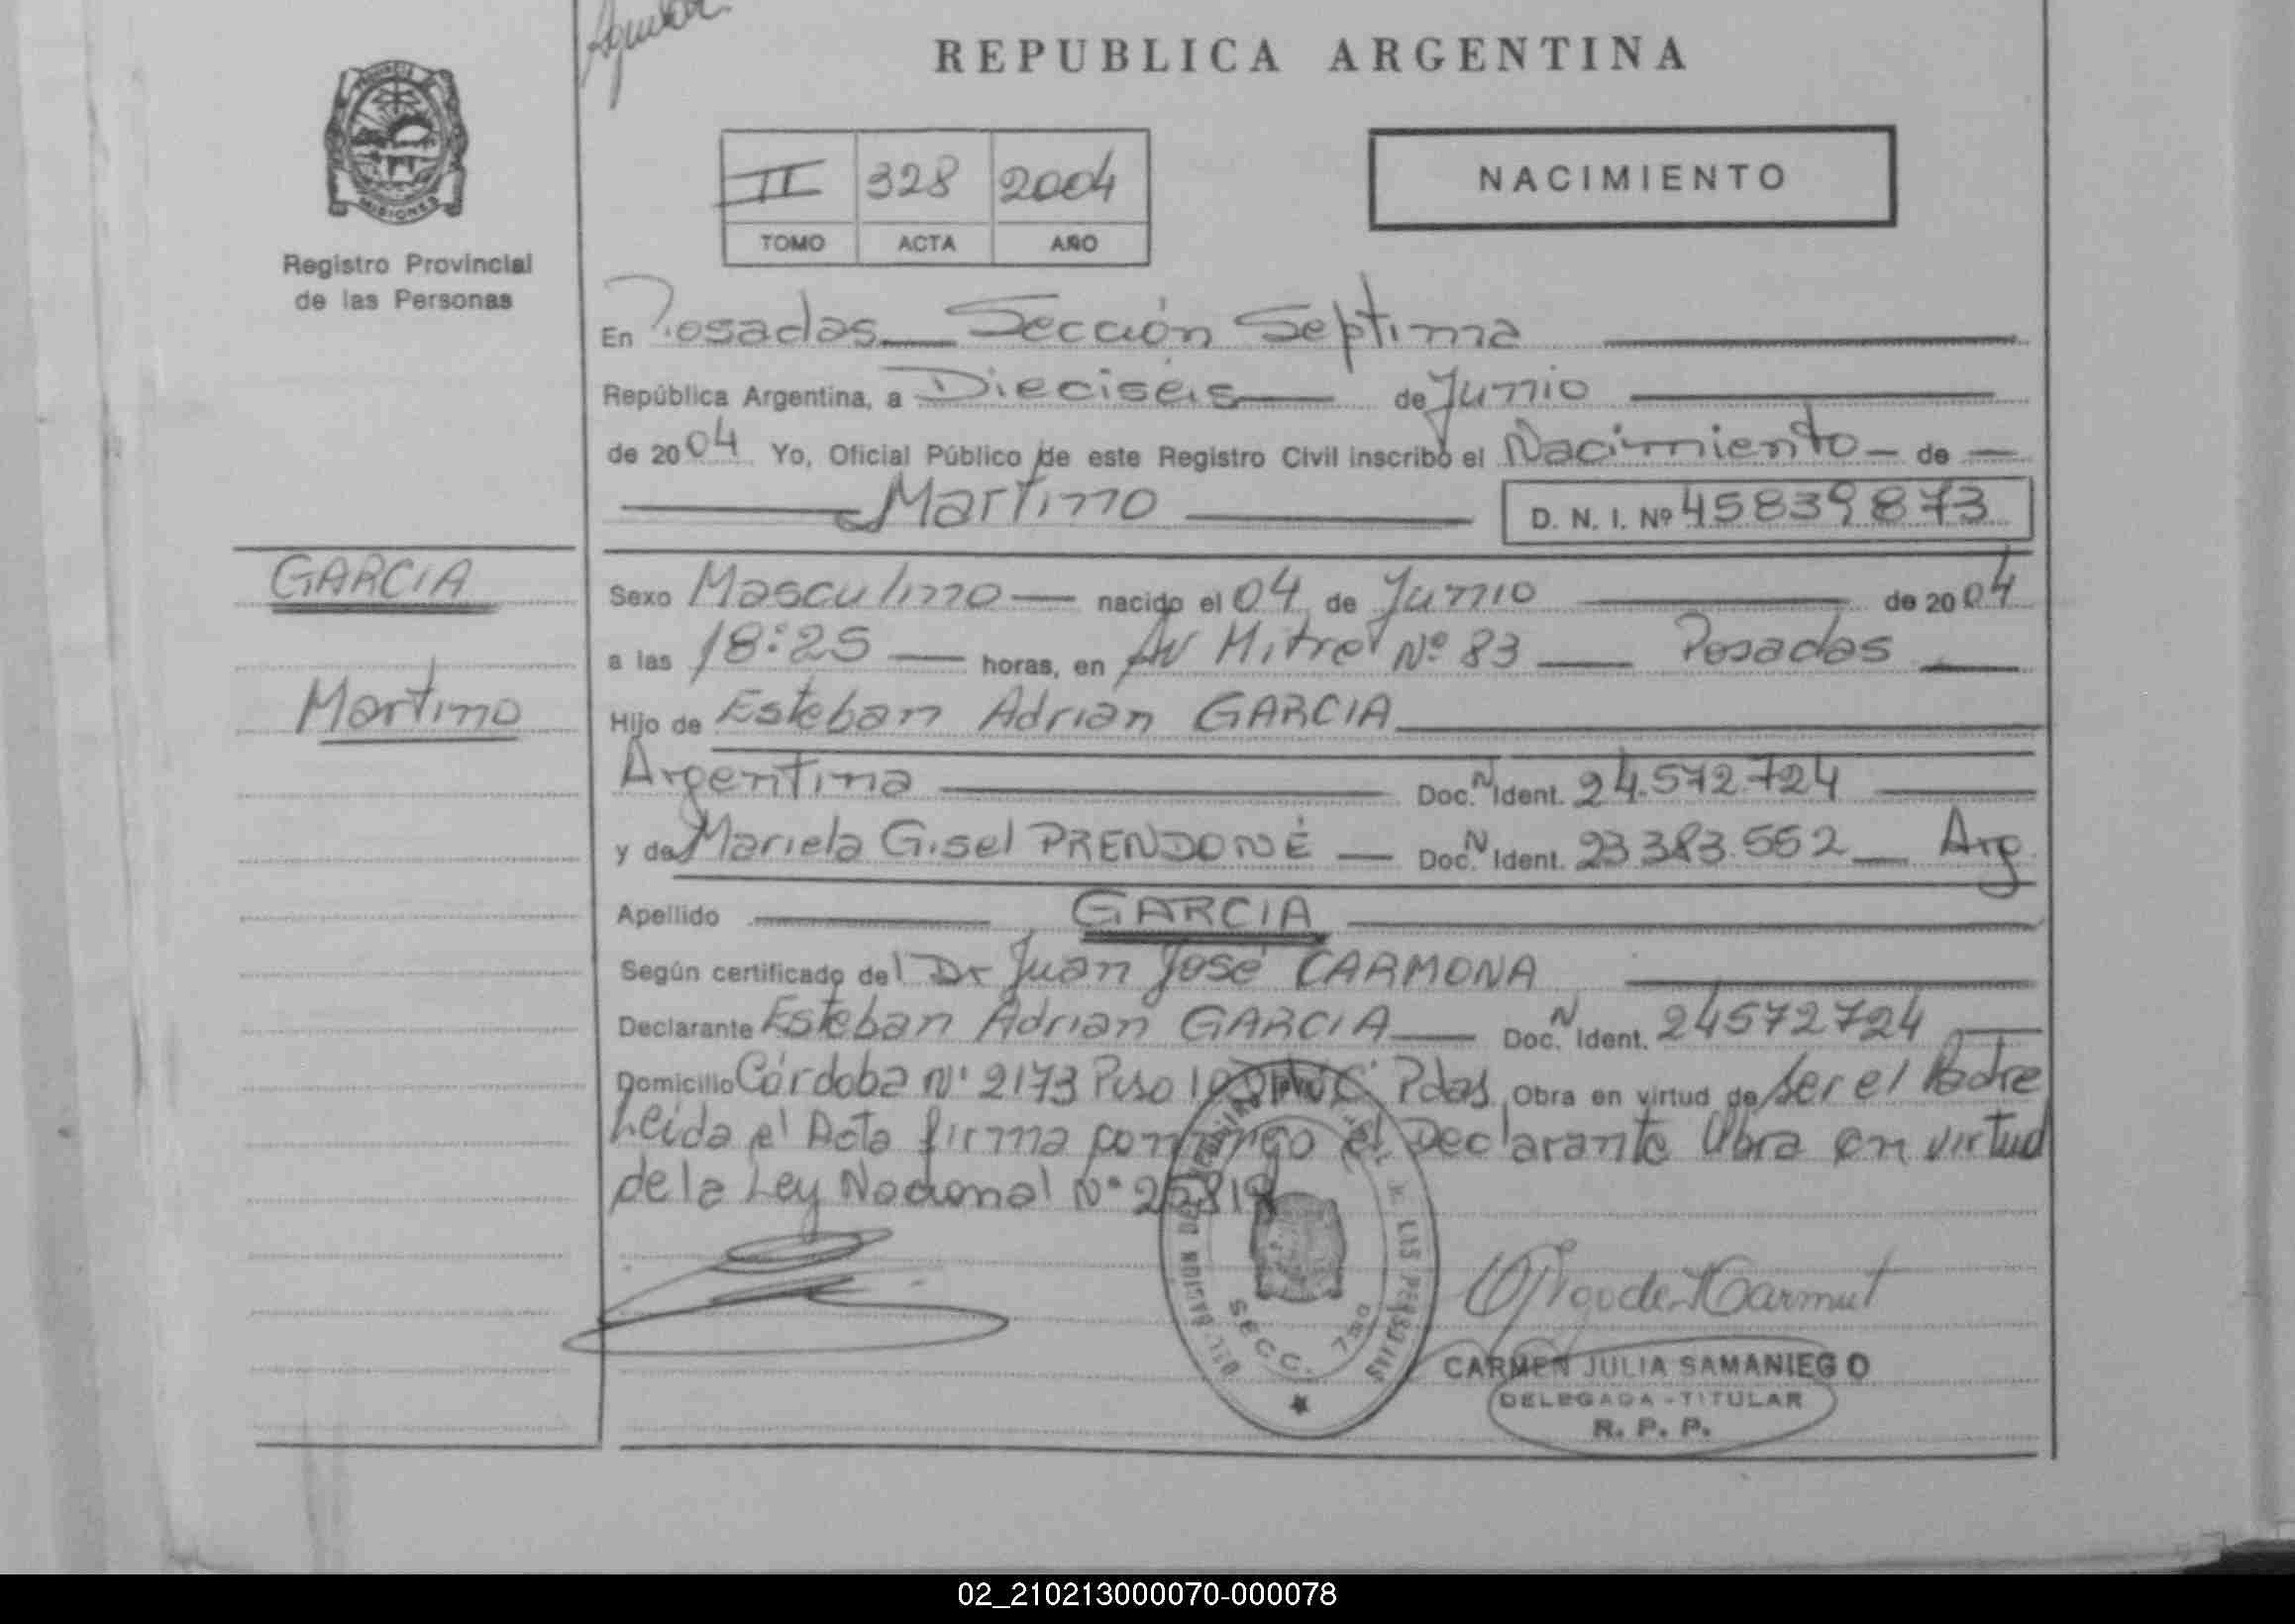 REPUBLICA ARGENTINA
PROVINCIA
MISIONES
Registro Provincial
de las Personas
II 328 2004
TOMO ACTA AÑO
NACIMIENTO
En Posadas Sección Septima
República Argentina, a Dieciséis de Junio
de 2004 Yo, Oficial Público de este Registro Civil inscribo el Nacimiento de
Martino
D. N. I. Nº 45839873
GARCIA
Martino
Sexo Masculino nacido el 04 de Junio de 2004
a las 18:25 horas, en Av Mitre Nº 83 Posadas
Hijo de Esteban Adrian GARCIA
Argentina Doc. N Ident. 24.572.724
y de Mariela Gisel PRENDONÉ Doc. N Ident. 23383.552 Arg
Apellido GARCIA
Según certificado del Dr Juan José CARMONA
Declarante Esteban Adrian GARCIA Doc. N Ident. 24572724
Domicilio Córdoba Nº 2173 Piso Pdas Obra en virtud de ser el Padre
Leida el Acta firma conmigo el Declarante Obra en virtud
de la Ley Nacional Nº 25819
DE LAS PERSONAS
SECC. 7ma
CARMEN JULIA SAMANIEGO
DELEGADA - TITULAR
R. P. P.
02_210213000070-000078